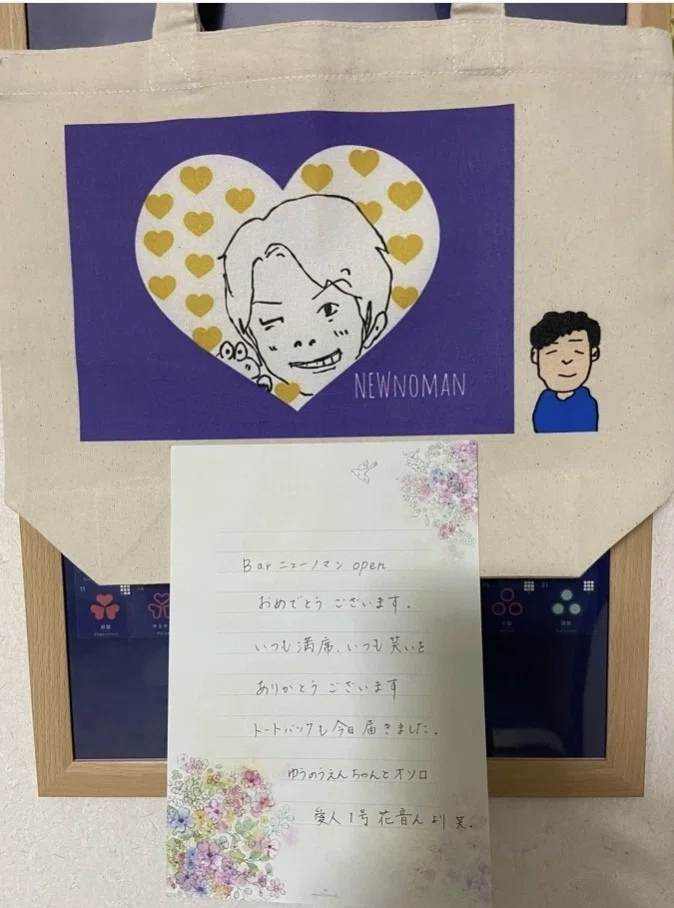 NEWNOMAN
Bar ニューノマン open
おめでとう ございます。
いつも 満席、いつも 笑いを
ありがとう ございます
トートバックも 今日 届きました。
ゆうのうえんちゃんと オソロ
愛人 1号 花音ん より 笑。
11
31